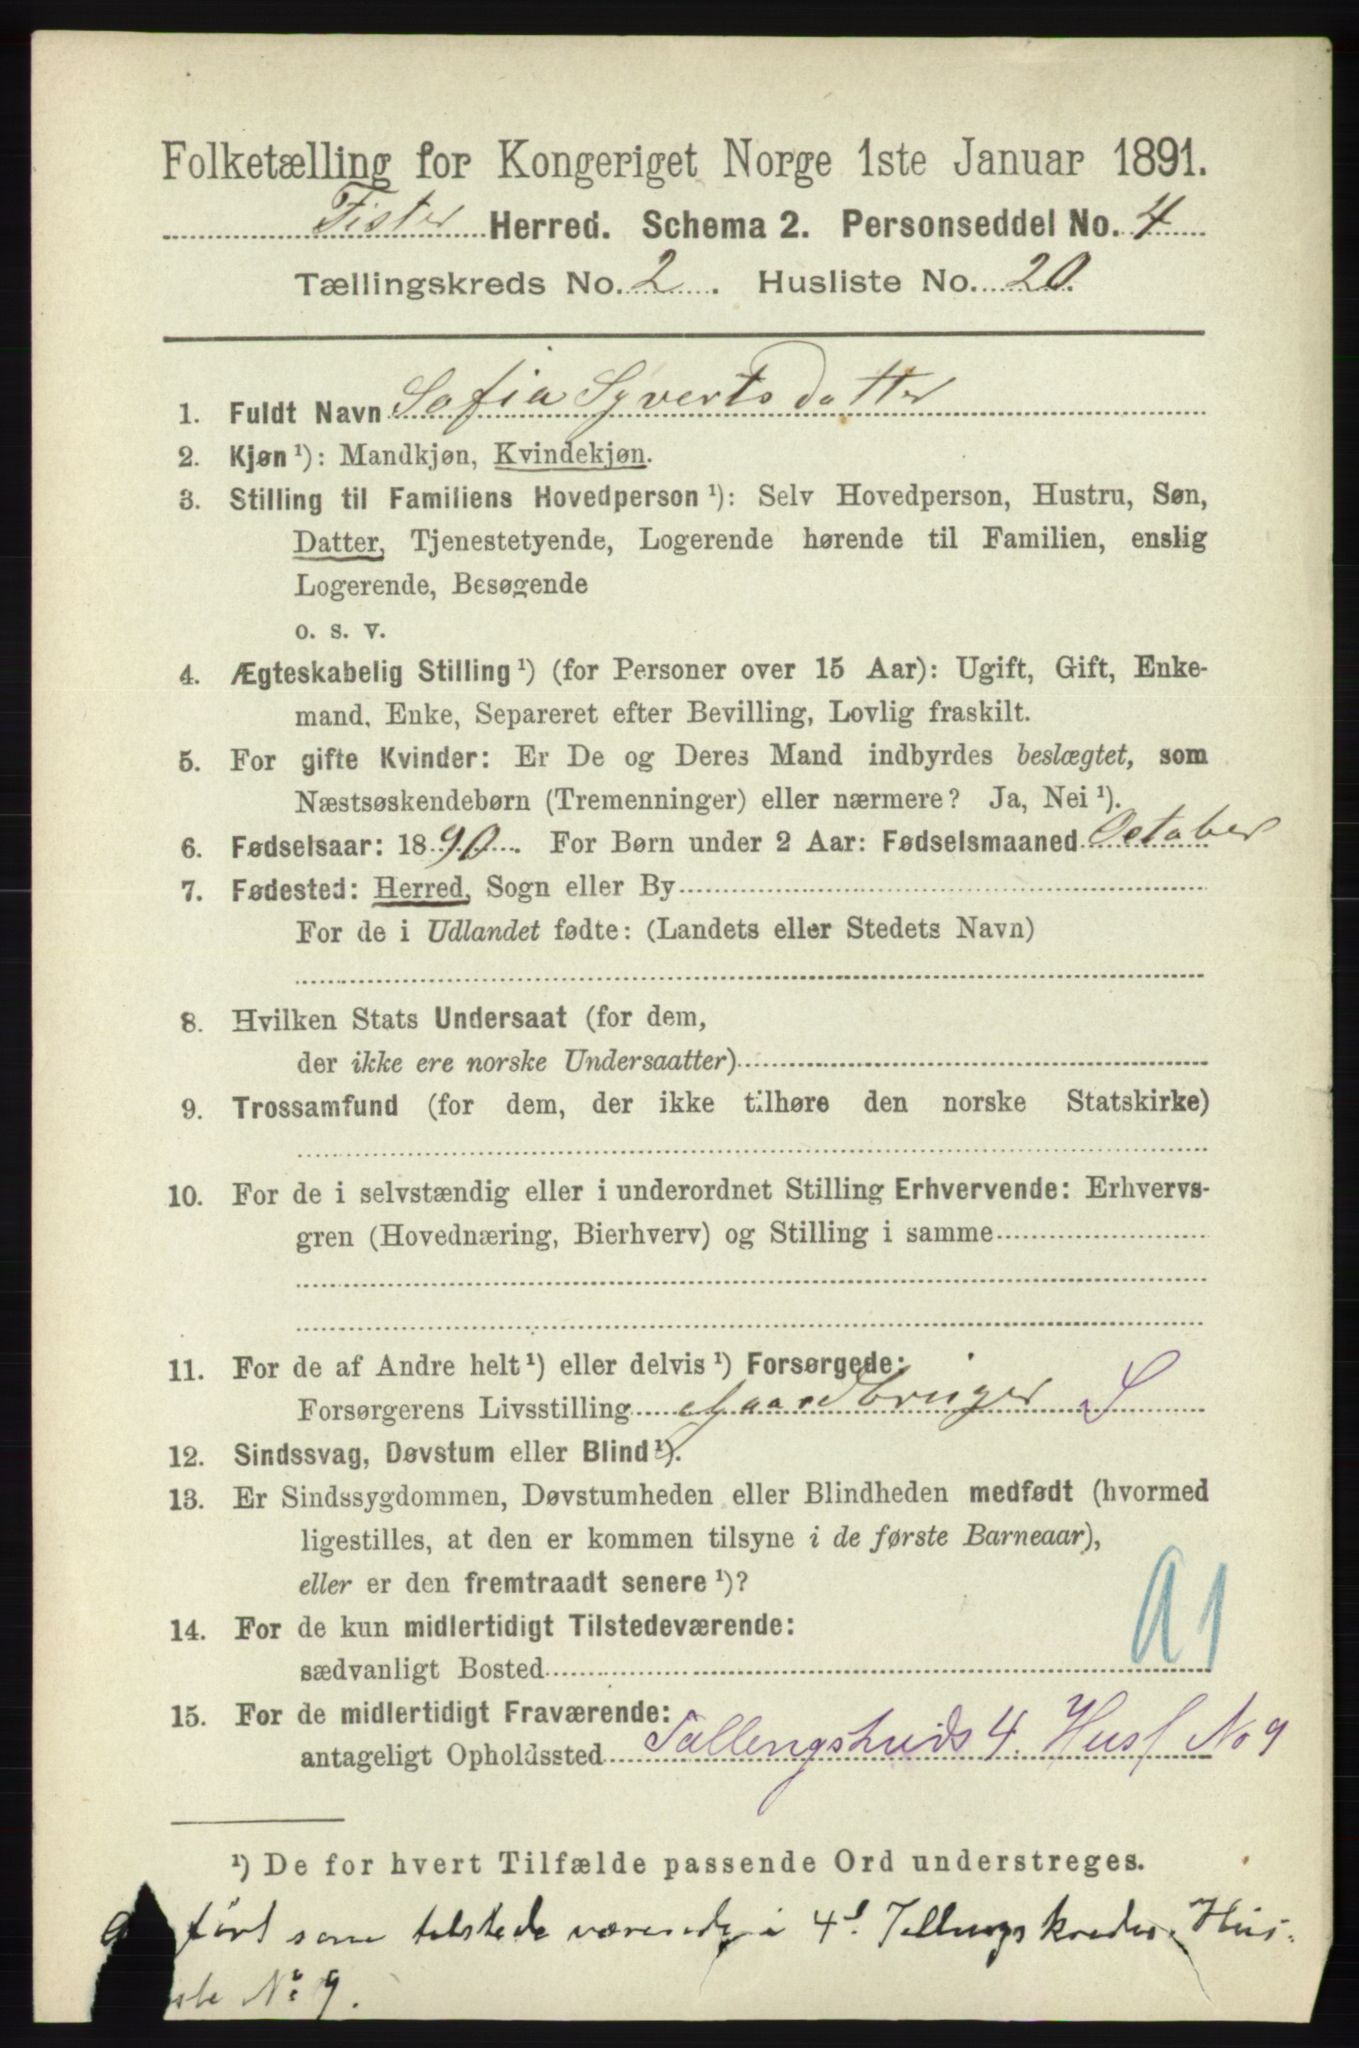 Folketælling for Kongeriget Norge 1ste Januar 1891.
Fister Herred. Schema 2. Personseddel No. 4
Tællingskreds No. 2. Husliste No. 20.
1. Fuldt Navn Sofia Syvertsdatter
2. Kjøn ¹): Mandkjøn, Kvindekjøn.
3. Stilling til Familiens Hovedperson ¹): Selv Hovedperson, Hustru, Søn,
Datter, Tjenestetyende, Logerende hørende til Familien, enslig
Logerende, Besøgende
o. s. v.
4. Ægteskabelig Stilling ¹) (for Personer over 15 Aar): Ugift, Gift, Enke-
mand, Enke, Separeret efter Bevilling, Lovlig fraskilt.
5. For gifte Kvinder: Er De og Deres Mand indbyrdes beslægtet, som
Næstsøskendebørn (Tremenninger) eller nærmere? Ja, Nei ¹).
6. Fødselsaar: 1890. For Børn under 2 Aar: Fødselsmaaned October
7. Fødested: Herred, Sogn eller By
For de i Udlandet fødte: (Landets eller Stedets Navn)
8. Hvilken Stats Undersaat (for dem,
der ikke ere norske Undersaatter)
9. Trossamfund (for dem, der ikke tilhøre den norske Statskirke)
10. For de i selvstændig eller i underordnet Stilling Erhvervende: Erhvervs-
gren (Hovednæring, Bierhverv) og Stilling i samme
11. For de af Andre helt ¹) eller delvis ¹) Forsørgede:
Forsørgerens Livsstilling Gaardbruger S
12. Sindssvag, Døvstum eller Blind ¹).
13. Er Sindssygdommen, Døvstumheden eller Blindheden medfødt (hvormed
ligestilles, at den er kommen tilsyne i de første Barneaar),
eller er den fremtraadt senere ¹)?
14. For de kun midlertidigt Tilstedeværende:
sædvanligt Bosted
15. For de midlertidigt Fraværende:
antageligt Opholdssted 4. Husl No 9
¹) De for hvert Tilfælde passende Ord understreges.
ført som tilstedeværende i 4d. Tellingskreds. Hus-
liste No 9.